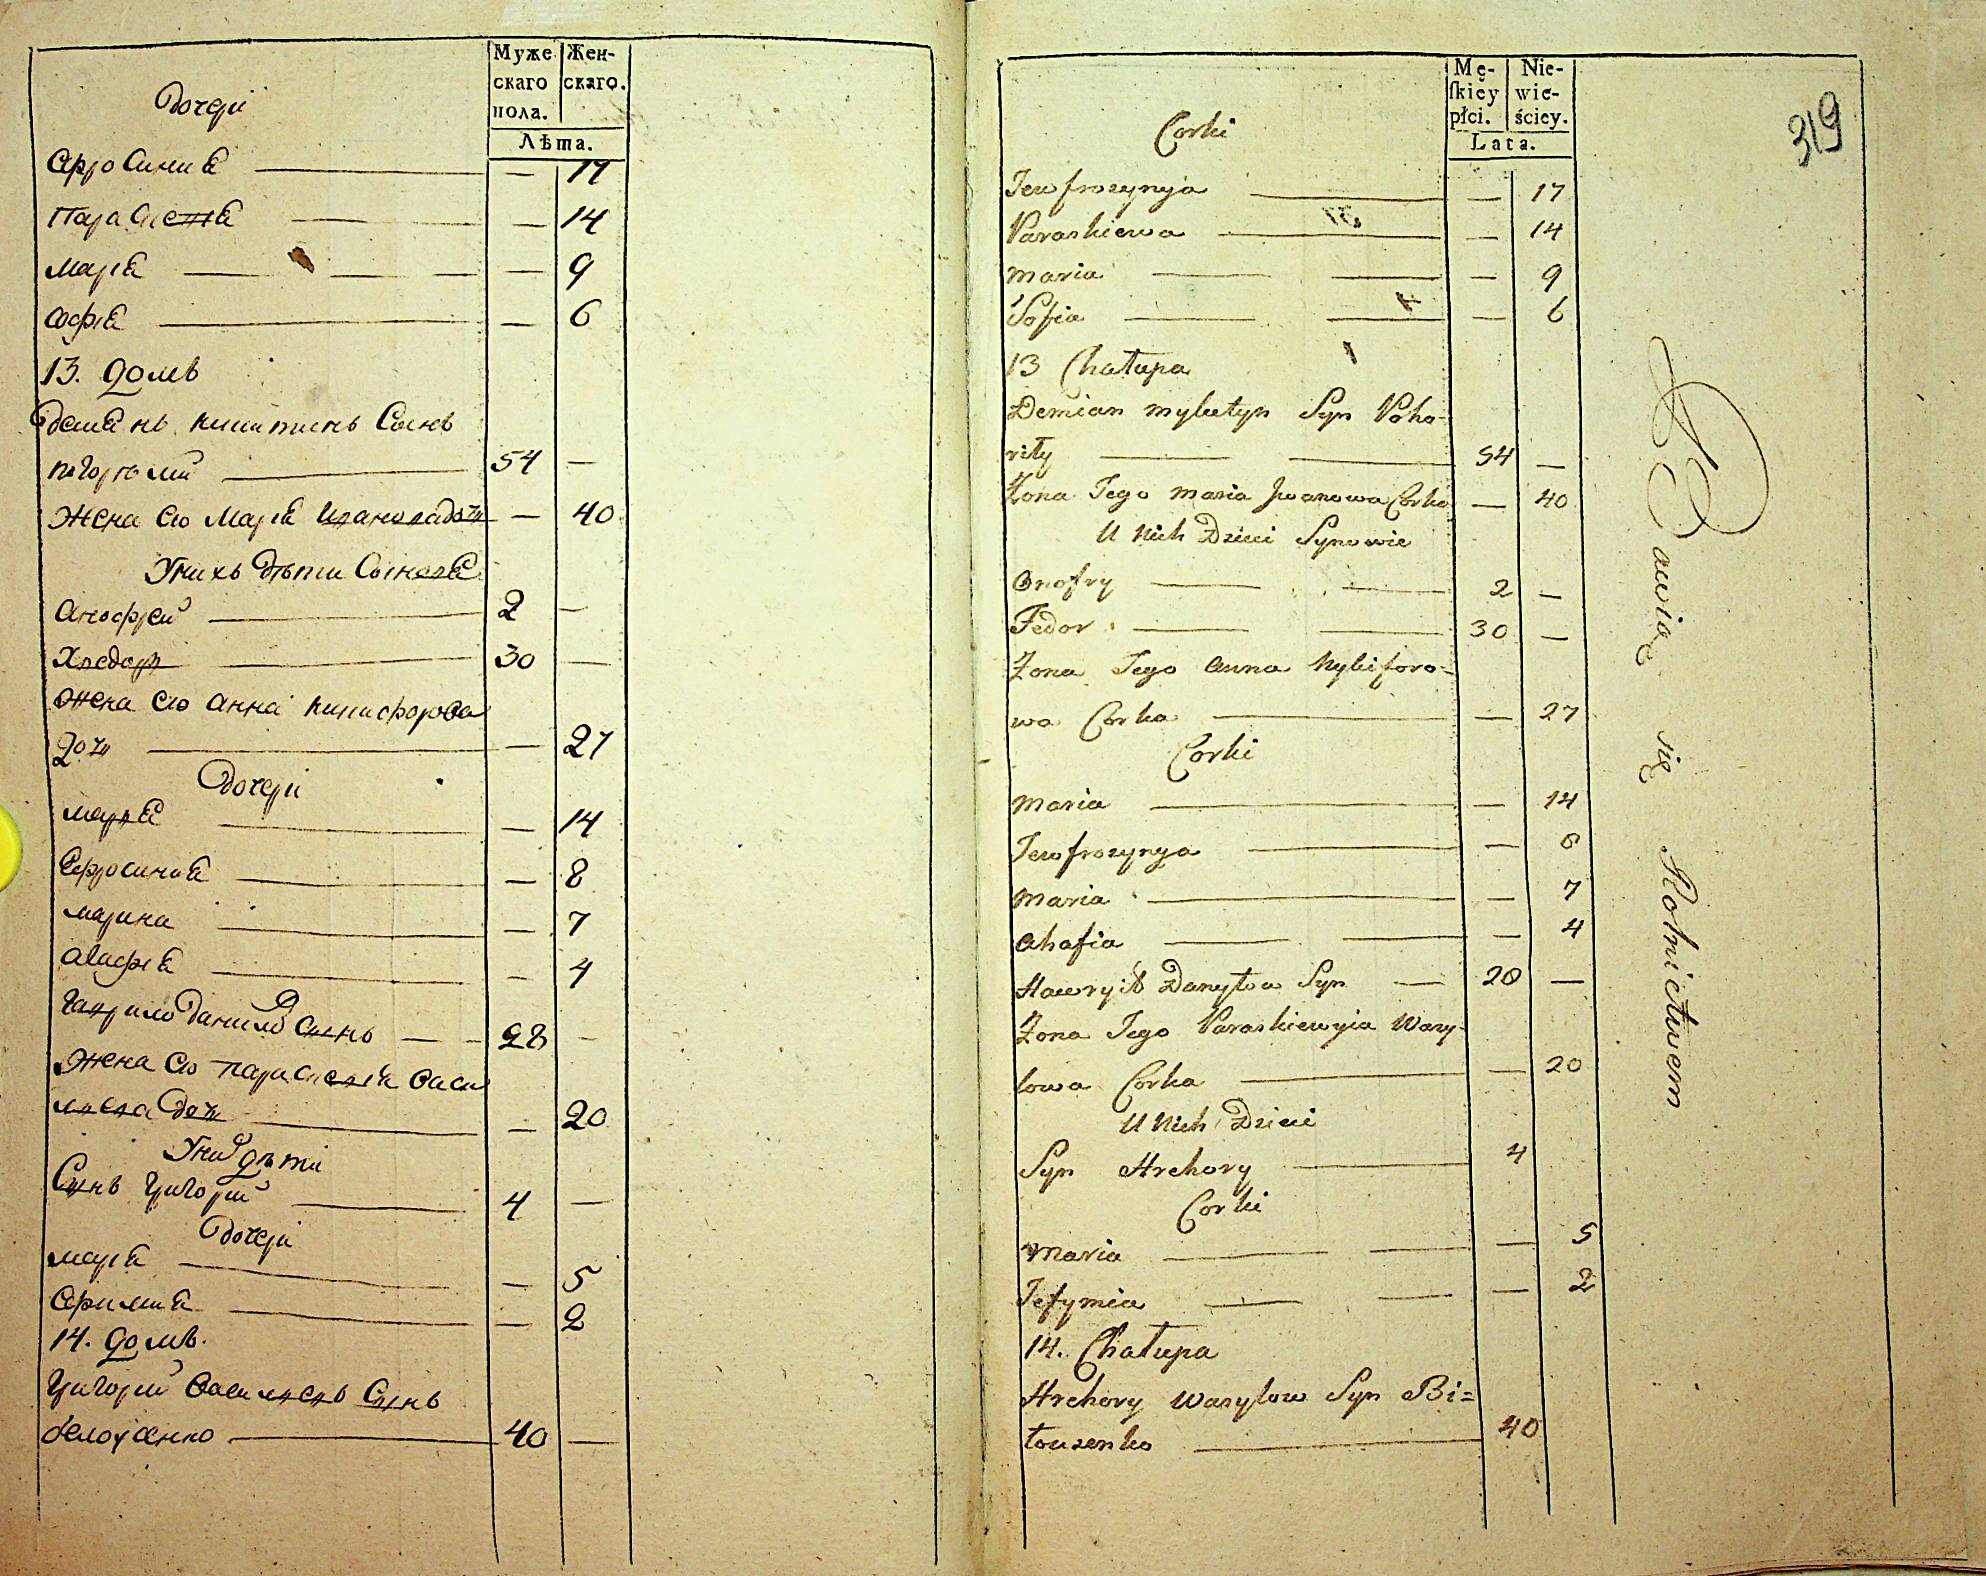 Муже
скаго
пола.
Жен-
скаго.
Лѣта.
Дочери
Ефросиния — 17
Параскевия — 14
Мария — 9
Софія — 6
13. Домъ
Демянъ Никитинъ Сынъ
погорилий 54 —
Жена его Марія Иванова дочь — 40
У нихъ дѣти Сыновя
Анофрей 2 —
Хведоръ 30 —
Жена его Анна Никифорова
дочь — 27
Дочери
Мария — 14
Ефросиния — 8
Марина — 7
Агафія — 4
Гаврило Данилов Сынъ — 28 —
Жена его Параскевия Васи
лиева Дочь — 20
У них дѣти
Сынъ Григорий 4 —
Дочери
Марія — 5
Ефимия — 2
14. Домъ.
Григорий Василиевъ Сынъ
белоусенко 40 —
Mę-
ſkiey
płci.
Nie-
wie-
ściey.
Lata.
319
Corki
Jewfrozynyja — 17
Paraskiewa — 14
Maria — 9
Sofia — 6
13 Chałupa
Demian Mykityn Syn Poho-
riły 54 —
Żona Jego Maria Jwanowa Corka — 40
U Nich Dzieci Synowie
Onofry 2 —
Fedor 30 —
Żona Jego Anna Nykiforo-
wa Corka — 27
Corki
Maria — 14
Jewfrozynya — 8
Maria — 7
Ahafia — 4
Hawryił Danyłow Syn — 28 —
Żona Jego Paraskiewyia Wasy-
lowa Corka — 20
U Nich Dzieci
Syn Hrehory 4
Corki
Maria — 5
Jefymia — 2
14. Chałupa
Hrehory Wasylow Syn Bi=
łouzenko 40
Bawią się Rolnictwem